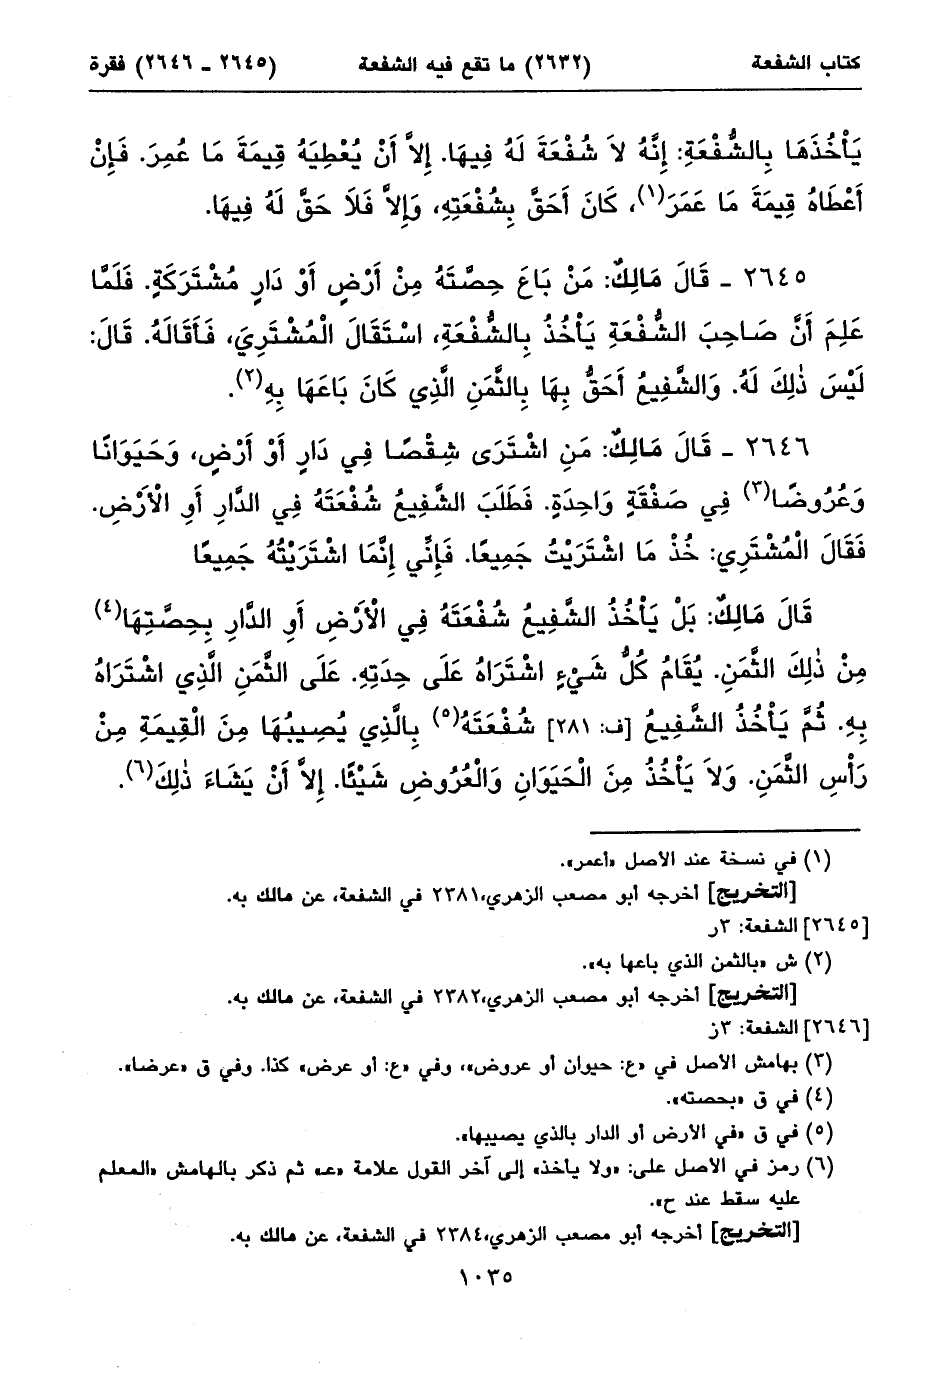 كتاب الشفعة (٢٦٣٢) ما تقع فيه الشفعة (٢٦٤٥ ـ ٢٦٤٦) فقرة
يَأْخُذَهَا بِالشُّفْعَةِ: إِنَّهُ لاَ شُفْعَةَ لَهُ فِيهَا. إِلاَّ أَنْ يُعْطِيَهُ قِيمَةَ مَا عُمِرَ. فَإِنْ
أَعْطَاهُ قِيمَةَ مَا عَمَرَ(١)، كَانَ أَحَقَّ بِشُفْعَتِهِ، وَإِلاَّ فَلاَ حَقَّ لَهُ فِيهَا.
٢٦٤٥ ـ قَالَ مَالِكٌ: مَنْ بَاعَ حِصَّتَهُ مِنْ أَرْضٍ أَوْ دَارٍ مُشْتَرَكَةٍ. فَلَمَّا
عَلِمَ أَنَّ صَاحِبَ الشُّفْعَةِ يَأْخُذُ بِالشُّفْعَةِ، اسْتَقَالَ الْمُشْتَرِيَ، فَأَقَالَهُ. قَالَ:
لَيْسَ ذٰلِكَ لَهُ. وَالشَّفِيعُ أَحَقُّ بِهَا بِالثَّمَنِ الَّذِي كَانَ بَاعَهَا بِهِ(٢).
٢٦٤٦ ـ قَالَ مَالِكٌ: مَنِ اشْتَرَى شِقْصًا فِي دَارٍ أَوْ أَرْضٍ، وَحَيَوَانًا
وَعُرُوضًا(٣) فِي صَفْقَةٍ وَاحِدَةٍ. فَطَلَبَ الشَّفِيعُ شُفْعَتَهُ فِي الدَّارِ أَوِ الْأَرْضِ.
فَقَالَ الْمُشْتَرِي: خُذْ مَا اشْتَرَيْتُ جَمِيعًا. فَإِنِّي إِنَّمَا اشْتَرَيْتُهُ جَمِيعًا
قَالَ مَالِكٌ: بَلْ يَأْخُذُ الشَّفِيعُ شُفْعَتَهُ فِي الْأَرْضِ أَوِ الدَّارِ بِحِصَّتِهَا(٤)
مِنْ ذٰلِكَ الثَّمَنِ. يُقَامُ كُلُّ شَيْءٍ اشْتَرَاهُ عَلَى حِدَتِهِ. عَلَى الثَّمَنِ الَّذِي اشْتَرَاهُ
بِهِ. ثُمَّ يَأْخُذُ الشَّفِيعُ [ف: ٢٨١] شُفْعَتَهُ(٥) بِالَّذِي يُصِيبُهَا مِنَ الْقِيمَةِ مِنْ
رَأْسِ الثَّمَنِ. وَلاَ يَأْخُذُ مِنَ الْحَيَوَانِ وَالْعُرُوضِ شَيْئًا. إِلاَّ أَنْ يَشَاءَ ذٰلِكَ(٦).
(١) في نسخة عند الأصل «أعمر».
[التخريج] أخرجه أبو مصعب الزهري،٢٣٨١ في الشفعة، عن مالك به.
[٢٦٤٥] الشفعة: ٣ر
(٢) ش «بالثمن الذي باعها به».
[التخريج] أخرجه أبو مصعب الزهري،٢٣٨٢ في الشفعة، عن مالك به.
[٢٦٤٦] الشفعة: ٣ز
(٣) بهامش الأصل في «ع: حيوان أو عروض»، وفي «ع: أو عرض» كذا. وفي ق «عرضا».
(٤) في ق «بحصته».
(٥) في ق «في الأرض أو الدار بالذي يصيبها».
(٦) رمز في الأصل على: «ولا يأخذ» إلى آخر القول علامة «عـ» ثم ذكر بالهامش «المعلم
عليه سقط عند ح».
[التخريج] أخرجه أبو مصعب الزهري،٢٣٨٤ في الشفعة، عن مالك به.
١٠٣٥